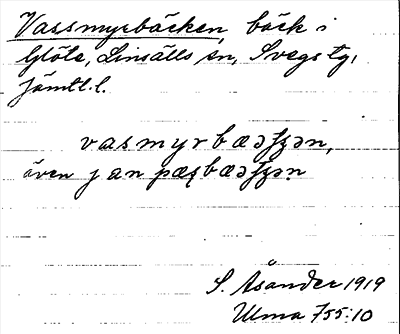 Vassmyrbäcken, bäck i
Glöte, Linsälls sn, Svegs tg,
Jämtl. l.
vasmyrbæʂʂən,
även jan pæʂbæʂʂən
S. Åsander 1919
Ulma 755:10